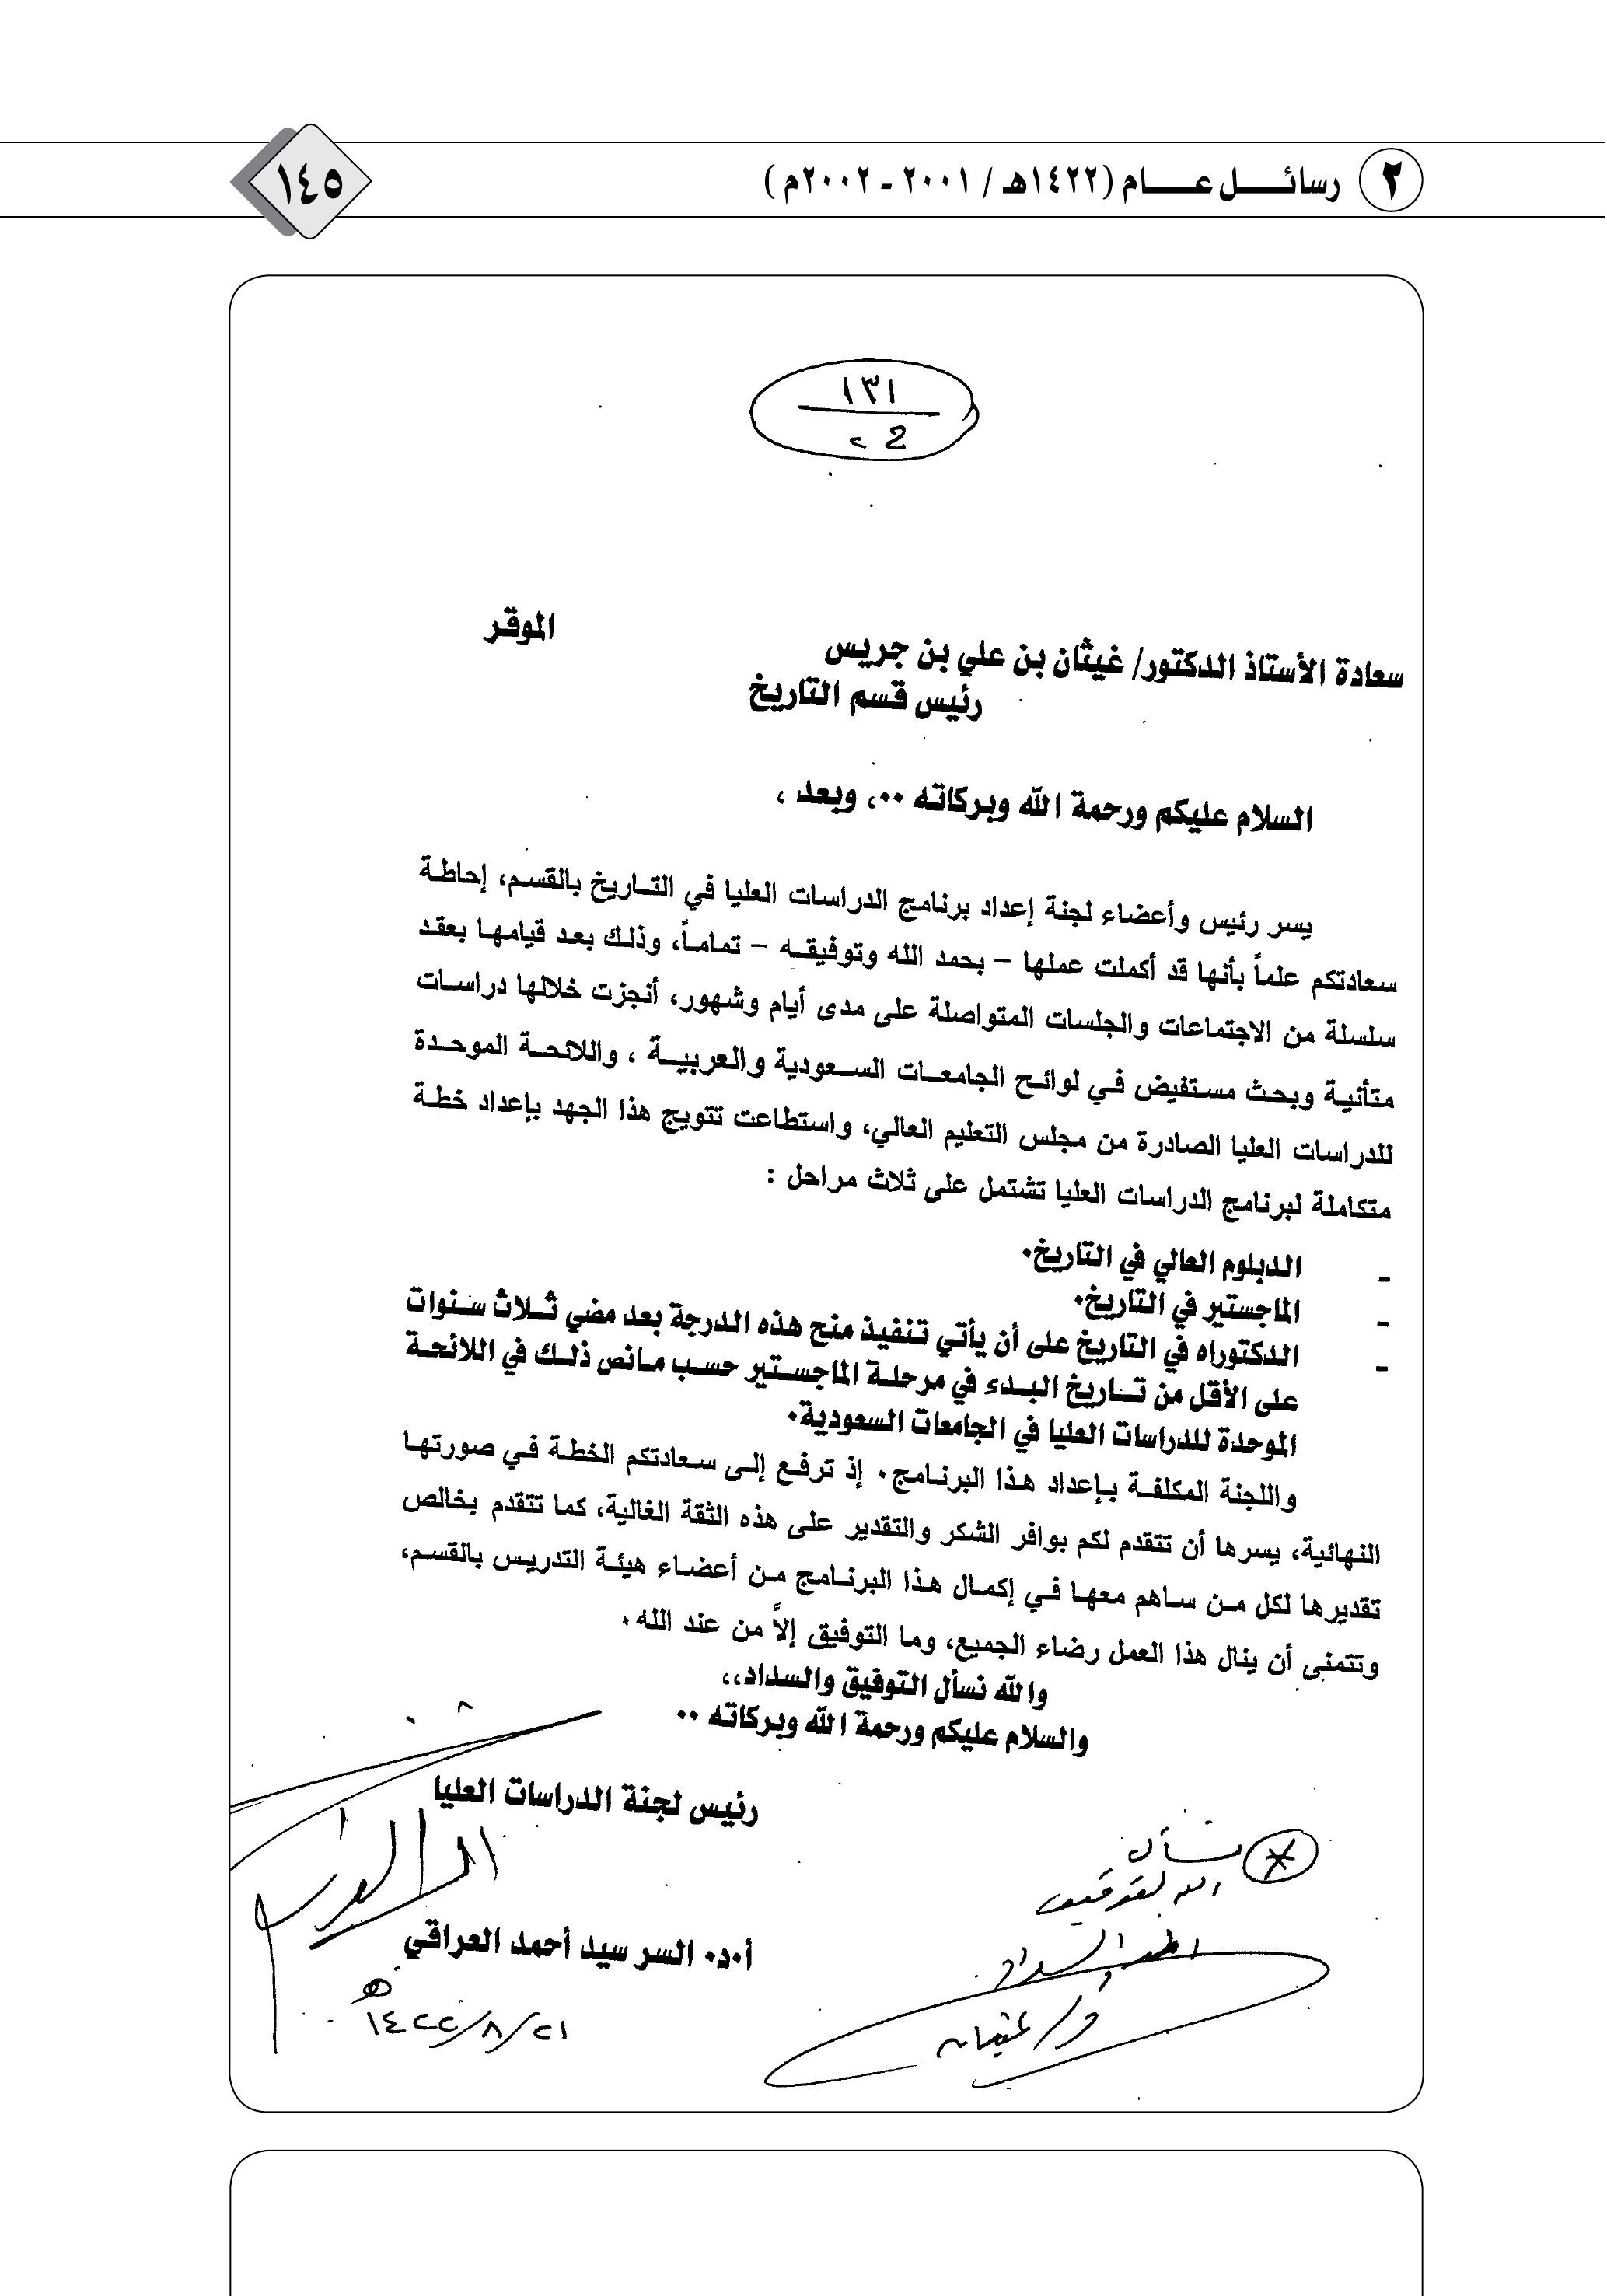 ٢ رسائل عام (١٤٢٢هـ / ٢٠٠١ ـ ٢٠٠٢م )
١٤٥
١٣١
سعادة الأستاذ الدكتور/ غيثان بن علي بن جريس الموقر
رئيس قسم التاريخ
السلام عليكم ورحمة الله وبركاته ٠٠، وبعد ،
يسر رئيس وأعضاء لجنة إعداد برنامج الدراسات العليا في التاريخ بالقسم، إحاطة
سعادتكم علماً بأنها قد أكملت عملها – بحمد الله وتوفيقه – تماماً، وذلك بعد قيامها بعقد
سلسلة من الاجتماعات والجلسات المتواصلة على مدى أيام وشهور، أنجزت خلالها دراسات
متأنية وبحث مستفيض في لوائح الجامعات السعودية والعربية ، واللائحة الموحدة
للدراسات العليا الصادرة من مجلس التعليم العالي، واستطاعت تتويج هذا الجهد بإعداد خطة
متكاملة لبرنامج الدراسات العليا تشتمل على ثلاث مراحل :
- الدبلوم العالي في التاريخ٠
- الماجستير في التاريخ٠
- الدكتوراه في التاريخ على أن يأتي تنفيذ منح هذه الدرجة بعد مضي ثلاث سنوات
على الأقل من تاريخ البدء في مرحلة الماجستير حسب مانص ذلك في اللائحة
الموحدة للدراسات العليا في الجامعات السعودية٠
واللجنة المكلفة بإعداد هذا البرنامج٠ إذ ترفع إلى سعادتكم الخطة في صورتها
النهائية، يسرها أن تتقدم لكم بوافر الشكر والتقدير على هذه الثقة الغالية، كما تتقدم بخالص
تقديرها لكل من ساهم معها في إكمال هذا البرنامج من أعضاء هيئة التدريس بالقسم،
وتتمنى أن ينال هذا العمل رضاء الجميع، وما التوفيق إلاَّ من عند الله٠
والله نسأل التوفيق والسداد،،
والسلام عليكم ورحمة الله وبركاته ٠٠
رئيس لجنة الدراسات العليا
نسأل
الله التوفيق
والسداد
أ٠د٠ السر سيد أحمد العراقي
د/ غيثان
١٤٢٢/٨/٢١هـ